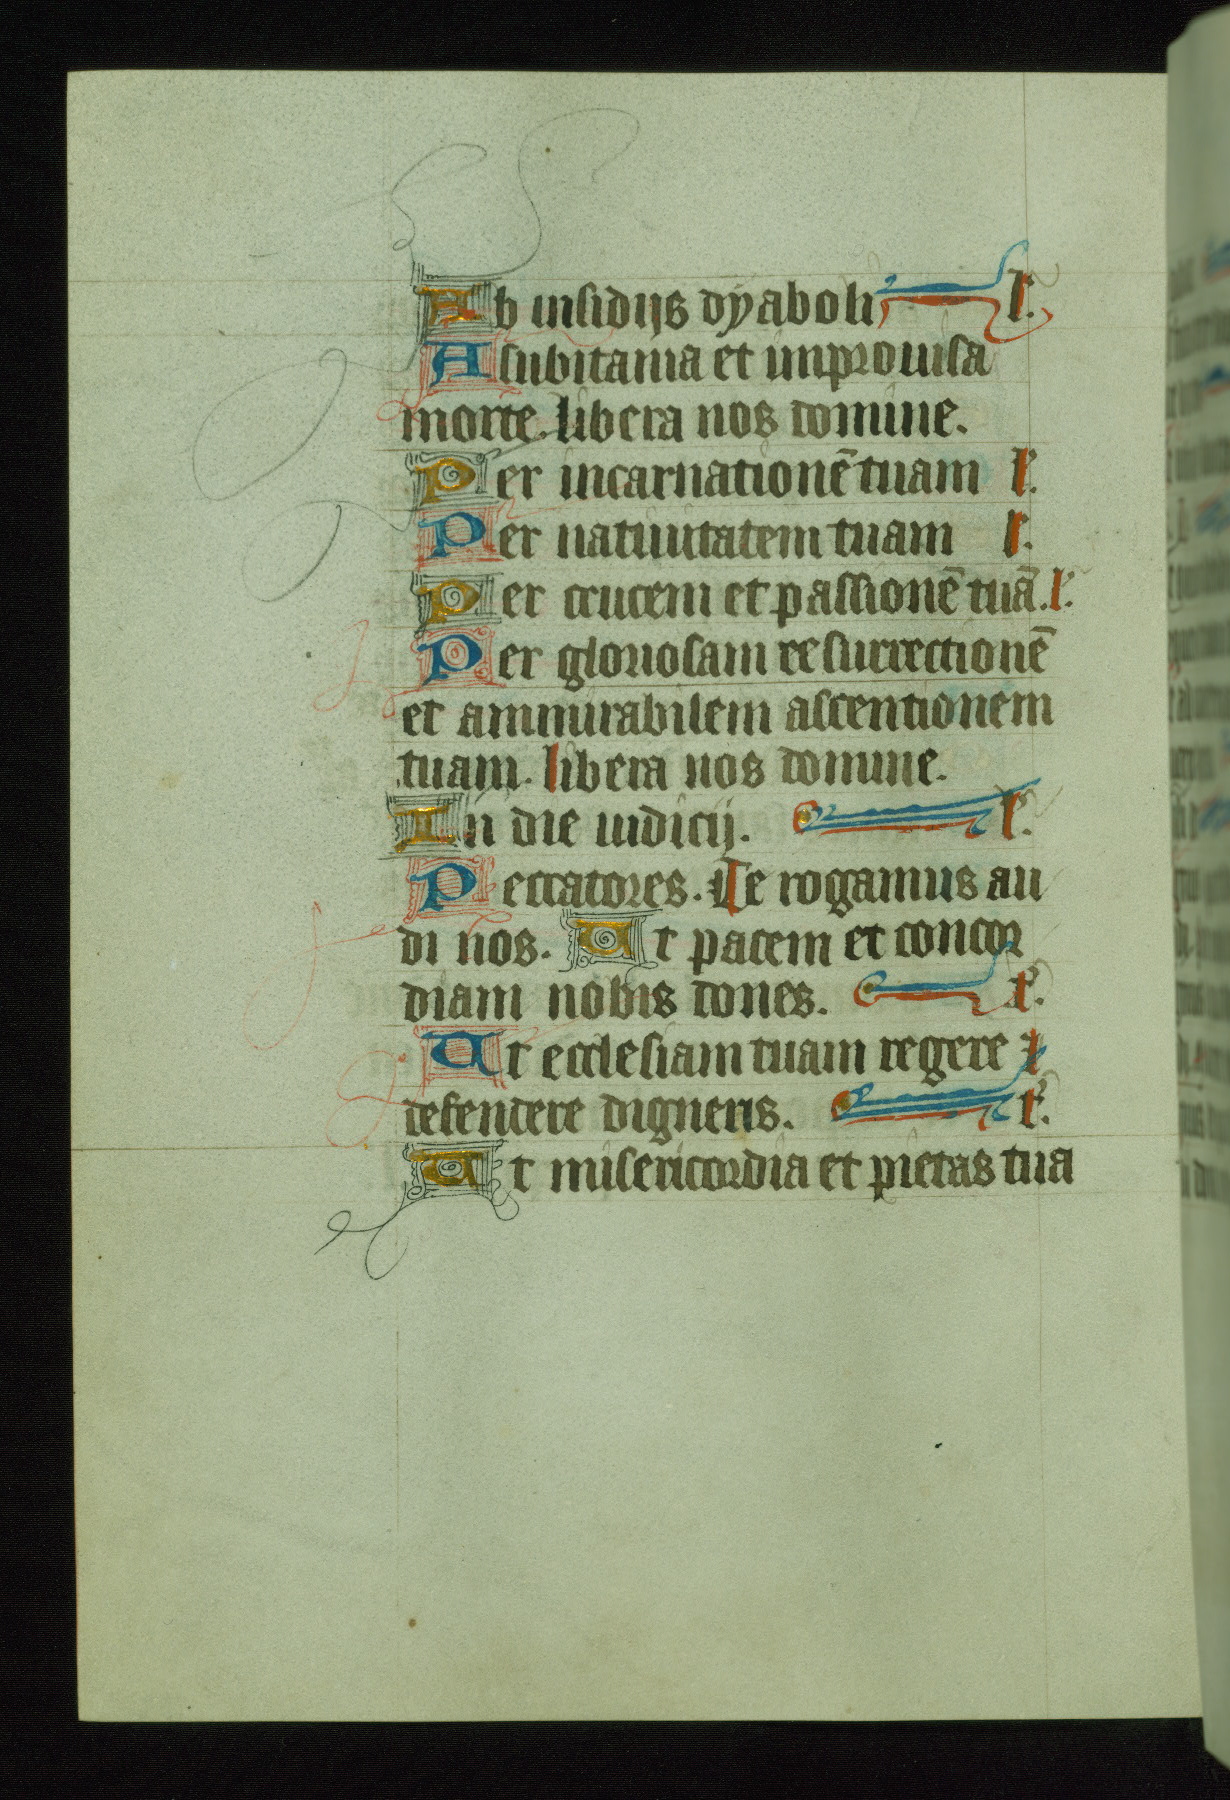 Ab insidijs dyaboli l.
A subitania et improuisa
morte. libera nos domine.
Per incarnationē tuam l.
Per natiuitatem tuam l.
Per crucem et passionē tuā. l.
Per gloriosam resurrectionē
et ammirabilem ascentionem
tuam. libera nos domine.
In die iudicij. l.
Peccatores. Te rogamus au
di nos. Ut pacem et concor
diam nobis dones. t.
Ut ecclesiam tuam regere ⁊
defendere digneris. t.
Ut misericordia et pietas tua